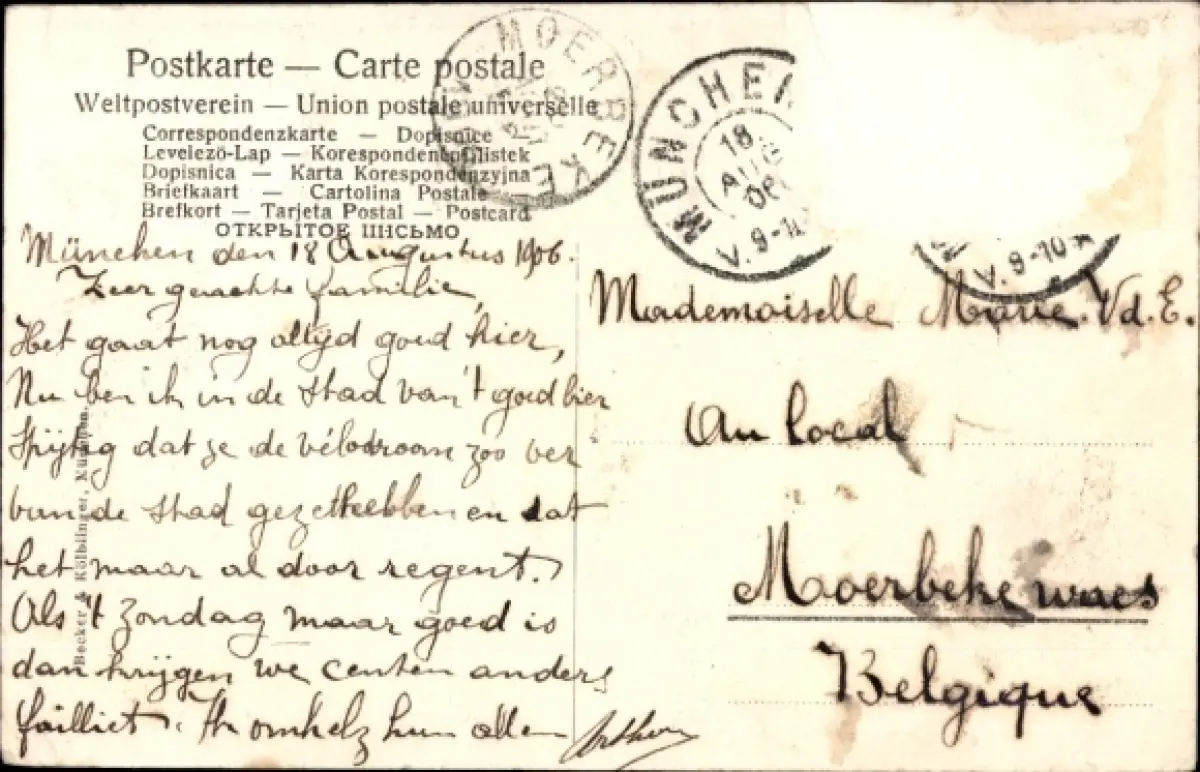 Postkarte — Carte postale
Weltpostverein — Union postale universelle
Correspondenzkarte — Dopisnice
Levelező-Lap — Korespondenční lístek
Dopisnica — Karta Korespondenzyjna
Briefkaart — Cartolina Postale
Brefkort — Tarjeta Postal — Postcard
ОТКРЫТОЕ ПИСЬМО
MOERBEKE
MÜNCHEN
18
AUG
06
V. 9-10
V. 9-10
München den 18 Augustus 1906.
Zeer geachte familie,
Het gaat nog altijd goed hier,
Nu ben ik in de stad van 't goed bier
Spijtig dat ze de vélodroom zoo ver
van de stad gezet hebben en dat
het maar al door regent.
Als 't Zondag maar goed is
dan krijgen we centen anders
failliet. Ik omhelz hun allen
Arthur
Mademoiselle Marie. Vd. E.
Au local
Moerbeke waes
Belgique
Becker & Kölblinger, München.